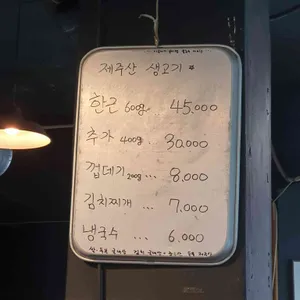 제주산 생고기
한근 600g. 45,000
추가 400g. 30,000
껍데기 200g ... 8,000
김치찌개 ... 7,000
냉국수 ... 6,000